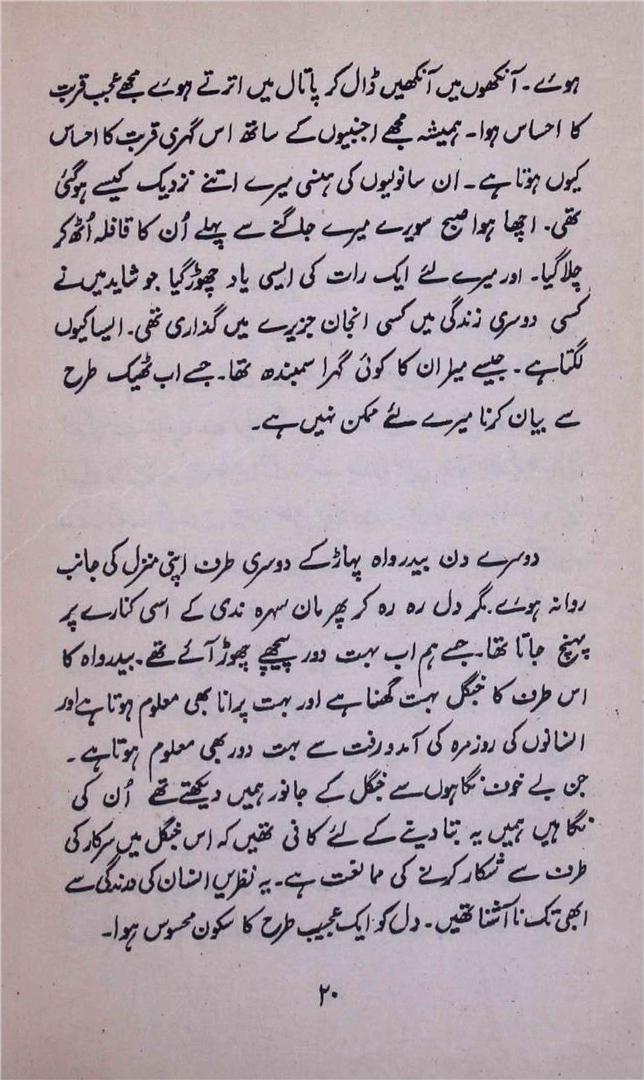 ہوئے۔ آنکھوں میں آنکھیں ڈال کر پاتال میں اترتے ہوئے مجھے عجب قربت
کا احساس ہوا۔ ہمیشہ مجھے اجنبیوں کے ساتھ اس گہری قربت کا احساس
کیوں ہوتا ہے۔ ان سانولیوں کی ہنسی میرے اتنے نزدیک کیسے ہوگئی
تھی۔ اچھا ہوا صبح سویرے میرے جاگنے سے پہلے اُن کا قافلہ اُٹھ کر
چلا گیا۔ اور میرے لئے ایک رات کی ایسی یاد چھوڑ گیا جو شاید میں نے
کسی دوسری زندگی میں کسی انجان جزیرے میں گذاری تھی۔ ایسا کیوں
لگتا ہے۔ جیسے میرا ان کا کوئی گہرا سمبندھ تھا۔ جسے اب ٹھیک طرح
سے بیان کرنا میرے لئے ممکن نہیں ہے۔
دوسرے دن بیدرواہ پہاڑ کے دوسری طرف اپنی منزل کی جانب
روانہ ہوئے۔ مگر دل رہ رہ کر پھر مان سہرہ ندی کے اسی کنارے پر
پہنچ جاتا تھا۔ جسے ہم اب بہت دور پیچھے چھوڑ آئے تھے۔ بیدرواہ کا
اس طرف کا جنگل بہت گھنا ہے اور بہت پرانا بھی معلوم ہوتا ہے اور
انسانوں کی روزمرہ کی آمد و رفت سے بہت دور بھی معلوم ہوتا ہے۔
جن بے خوف نگاہوں سے جنگل کے جانور ہمیں دیکھتے تھے اُن کی
نگاہیں ہمیں یہ بتا دینے کے لئے کافی تھیں کہ اس جنگل میں سرکار کی
طرف سے شکار کرنے کی ممانعت ہے۔ یہ نظریں انسان کی درندگی سے
ابھی تک ناآشنا تھیں۔ دل کو ایک عجیب طرح کا سکون محسوس ہوا۔
۲۰